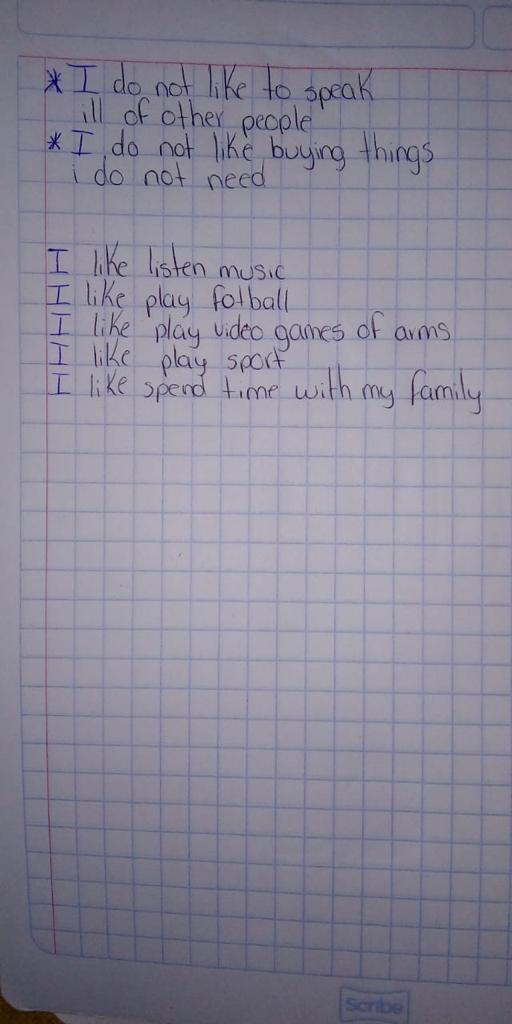 * I do not like to speak
ill of other people
* I do not like buying things
i do not need
I like listen music
I like play fotball
I like play video games of arms
I like play sport
I like spend time with my family
Scribe